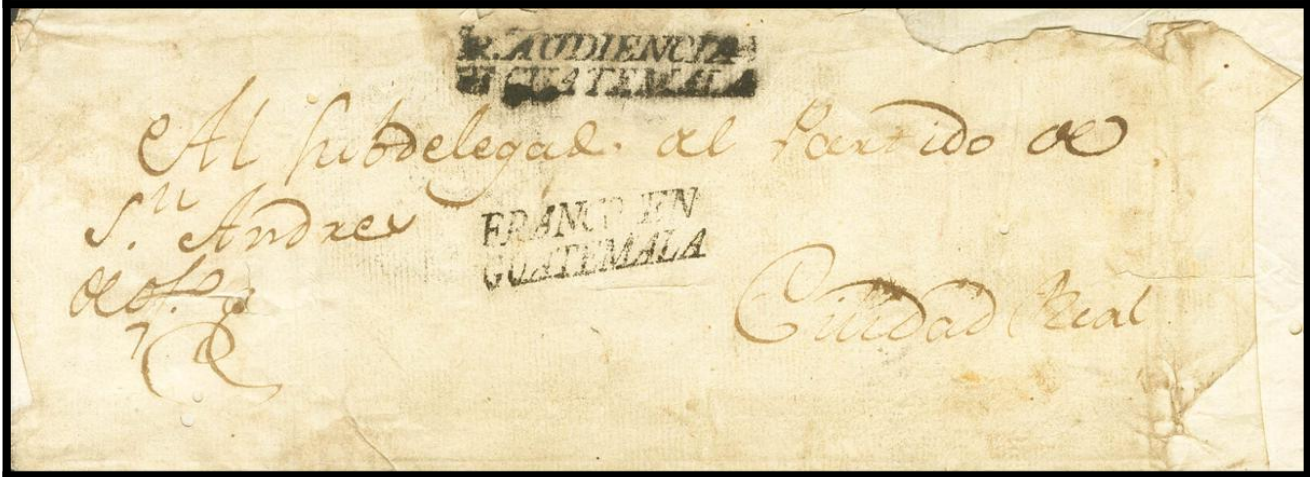 R. AUDIENCIA
GUATEMALA
Al Subdelegad. del Partido de
S.n Andres
FRANCO EN
GUATEMALA
de of.o
Ciudad Real